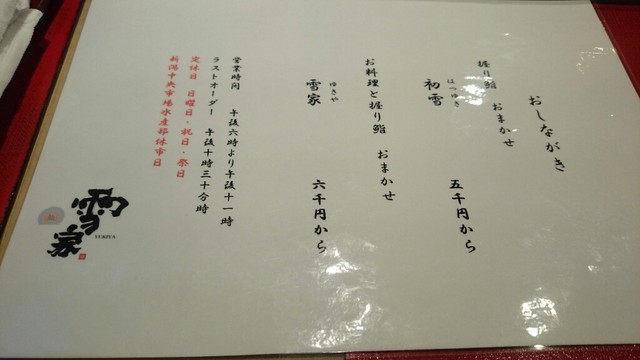 おしながき
握り鮨 おまかせ
はつゆき
初雪 五千円から
お料理と握り鮨 おまかせ
ゆきや
雪家 六千円から
営業時間 午後六時より午後十一時
ラストオーダー 午後十時三十分時
定休日 日曜日・祝日・祭日
新潟中央市場水産部休市日
雪家
YUKIYA